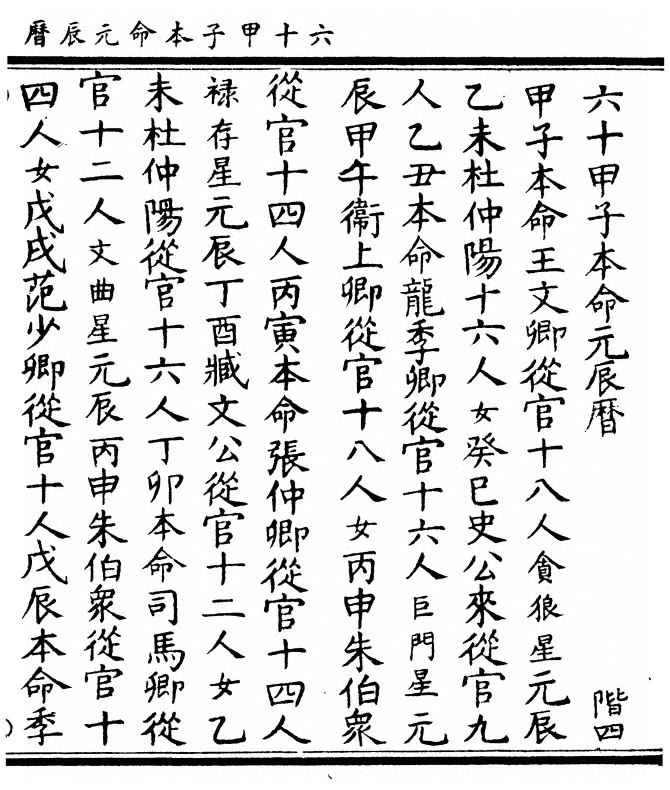 六十甲子本命元辰曆
六十甲子本命元辰曆 階四
甲子本命王文卿從官十八人貪狼星元辰
乙未杜仲陽十六人女癸巳史公來從官九
人乙丑本命龍季卿從官十六人巨門星元
辰甲午衞上卿從官十八人女丙申朱伯衆
從官十四人丙寅本命張仲卿從官十四人
禄存星元辰丁酉臧文公從官十二人女乙
未杜仲陽從官十六人丁卯本命司馬卿從
官十二人文曲星元辰丙申朱伯衆從官十
四人女戊戌范少卿從官十人戊辰本命季